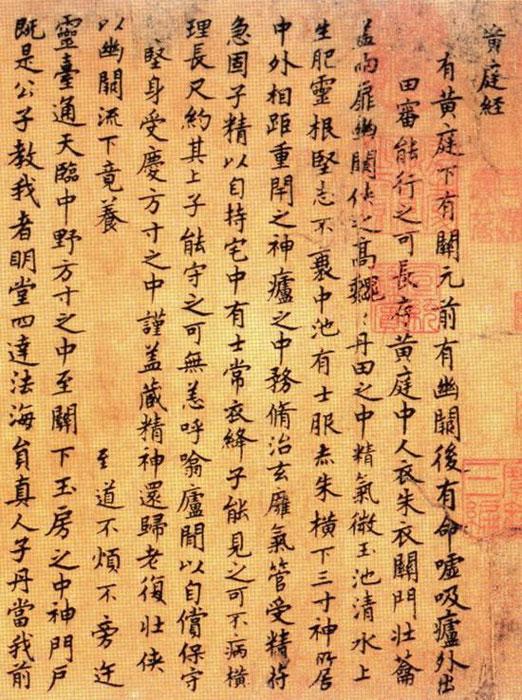 黄庭经
有黄庭下有關元前有幽闕後有命嘘吸廬外出
田審能行之可長存黄庭中人衣朱衣關門壯蘥
盖兩扉幽闕俠之高巍丹田之中精氣微玉池清水上
生肥靈根堅志不衰中池有士服赤朱横下三寸神所居
中外相距重閇之神廬之中務脩治玄廱氣管受精苻
急固子精以自持宅中有士常衣絳子能見之可不病横
理長尺約其上子能守之可無恙呼噏廬閒以自償保守
堅身受慶方寸之中謹盖藏精神還歸老復壯俠
以幽闕流下竟養 至道不煩不旁迕
靈臺通天臨中野方寸之中至關下玉房之中神門戸
既是公子教我者明堂四達法海員真人子丹當我前